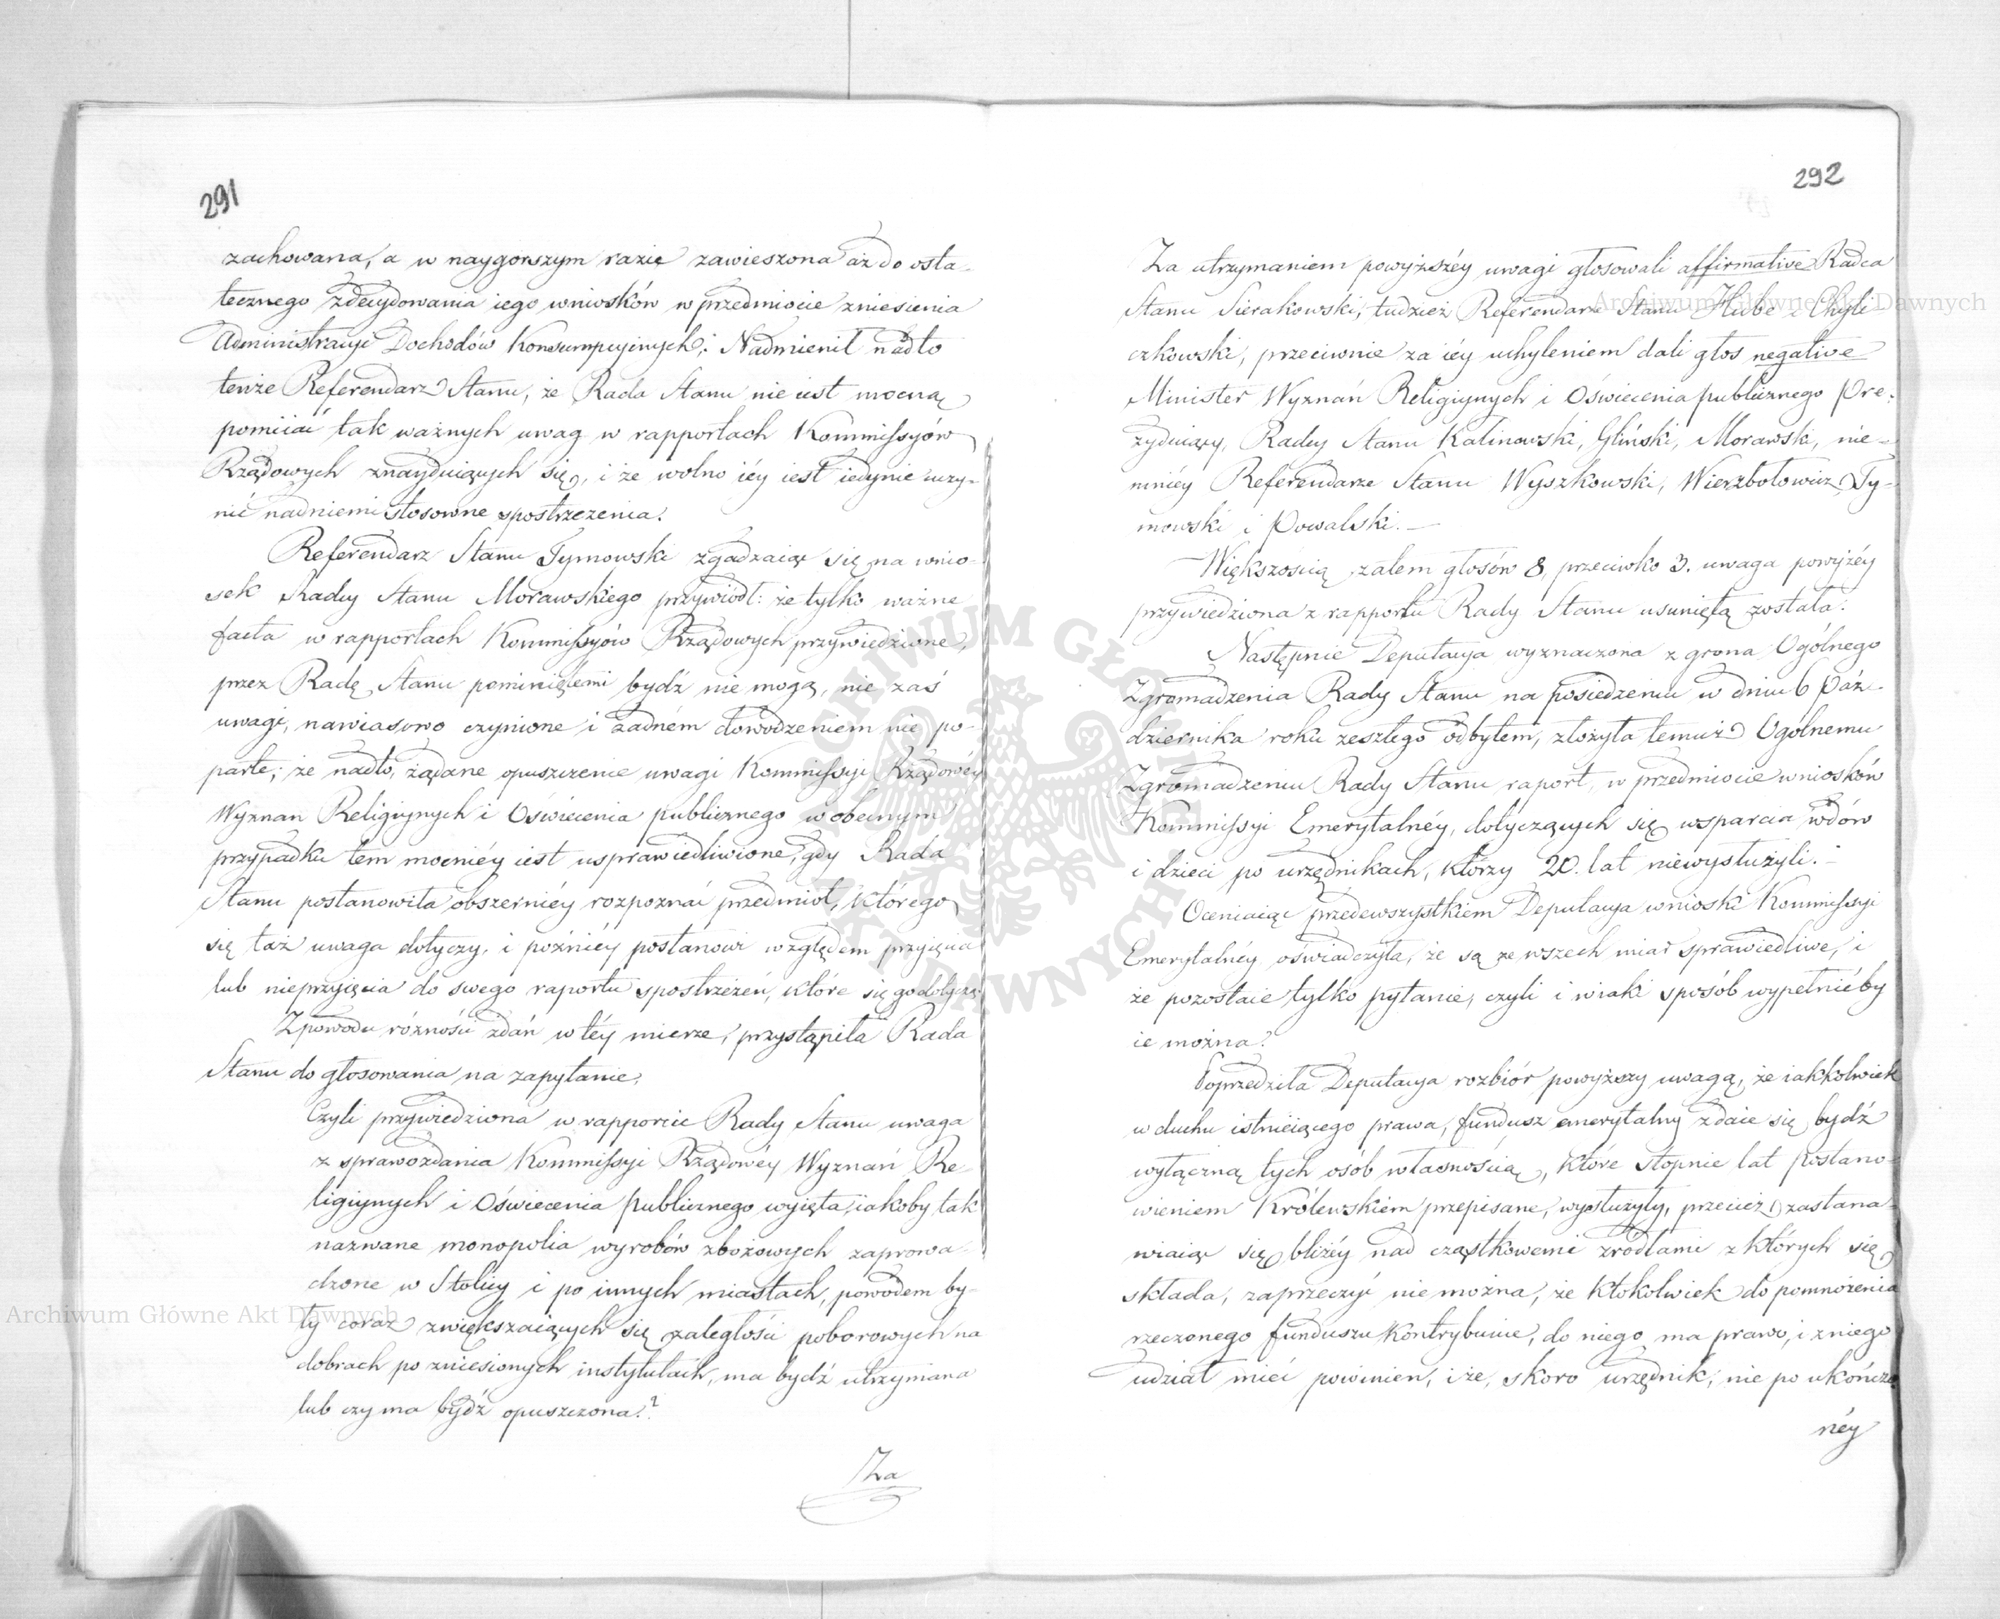 291
zachowana, a w naygorszym razie zawieszona aż do osta-
tecznego zdecydowania iego wniosków w przedmiocie zniesienia
Administracyi Dochodów Konsumpcyinych; Nadmienił nadto
tenże Referendarz Stanu, że Rada Stanu nie iest mocną
pomiiać tak ważnych uwag w rapportach Kommissyów
Rządowych znayduiących się, i że wolno iéy iest iedynie uczy-
nić nad niemi stosowne spostrzeżenia.
Referendarz Stanu Tymowski zgadzaiąc się na wnio-
sek Radcy Stanu Morawskiego przywiódł: że tylko ważne
facta w rapportach Kommissyów Rządowych przywiedzione,
przez Radę Stanu pominiętemi bydź nie mogą, nie zaś
uwagi, nawiasowo czynione i żadném dowodzeniem nie po-
parte; że nadto, żądane opuszczenie uwagi Kommissyi Rządowéy
Wyznań Religiynych i Oświecenia publicznego w obecnym
przypadku tem mocniéy iest usprawiedliwione, gdy Rada
Stanu postanowiła obszerniéy rozpoznać przedmiot, którego
się taż uwaga dotyczy, i późniéy postanowi względem przyięcia
lub nieprzyięcia do swego raportu spostrzeżeń, które się go dotyczą.
Z powodu różności zdań w téy mierze, przystąpiła Rada
Stanu do głosowania na zapytanie,
Czyli przywiedziona w rapporcie Rady Stanu uwaga
z sprawozdania Kommissyi Rządowéy Wyznań Re-
ligiynych i Oświecenia publicznego wyięta, iakoby tak
nazwane monopolia wyrobów zbożowych zaprowa-
dzone w Stolicy i po innych miastach, powodem by-
ły coraz zwiększaiących się zaległości poborowych na
dobrach po zniesionych instytutach, ma bydź utrzymana
lub czy ma bydź opuszczona?
Za
292
Za utrzymaniem powyższéy uwagi głosowali affirmative Radca
Stanu Sierakowski, tudzież Referendarze Stanu Hube i Chyli-
czkowski, przeciwnie za iéy uchyleniem dali głos negative
Minister Wyznań Religiynych i Oświecenia publicznego Pre-
zyduiący, Radcy Stanu Kalinowski, Gliński, Morawski, nie-
mniéy Referendarze Stanu Wyszkowski, Wierzbołowicz, Ty-
mowski i Powalski. —
Większością zatem głosów 8, przeciwko 3. uwaga powyżéy
przywiedziona z rapportu Rady Stanu usuniętą została.
Następnie Deputacya wyznaczona z grona Ogólnego
Zgromadzenia Rady Stanu na posiedzeniu w dniu 6 Paź-
dziernika roku zeszłego odbytem, złożyła temuż Ogólnemu
Zgromadzeniu Rady Stanu raport, w przedmiocie wniosków
Kommissyi Emerytalnéy, dotyczących się wsparcia wdów
i dzieci po urzędnikach, którzy 20. lat niewysłużyli. —
Oceniaiąc przedewszystkiem Deputacya wnioski Kommissyi
Emerytalnéy oświadczyła, że są ze wszech miar sprawiedliwe, i
że pozostaie tylko pytanie, czyli i w iaki sposób wypełnić by
ie można?
Poprzedziła Deputacya rozbiór powyższy uwagą, że iakkolwiek
w duchu istnieiącego prawa, fundusz emerytalny zdaie się bydź
wyłączną tych osób własnością, które stopnie lat postano-
wieniem Królewskiem przepisane, wysłużyły, przecież zastana-
wiaiąc się bliżéy nad cząstkowemi źródłami z których się
składa, zaprzeczyć nie można, że ktokolwiek do pomnożenia
rzeczonego funduszu kontrybuuie, do niego ma prawo, i z niego
udział mieć powinien, i że, skoro urzędnik, nie po ukończo-
néy
Archiwum Główne Akt Dawnych
Archiwum Główne Akt Dawnych
ARCHIWUM GŁÓWNE AKT DAWNYCH